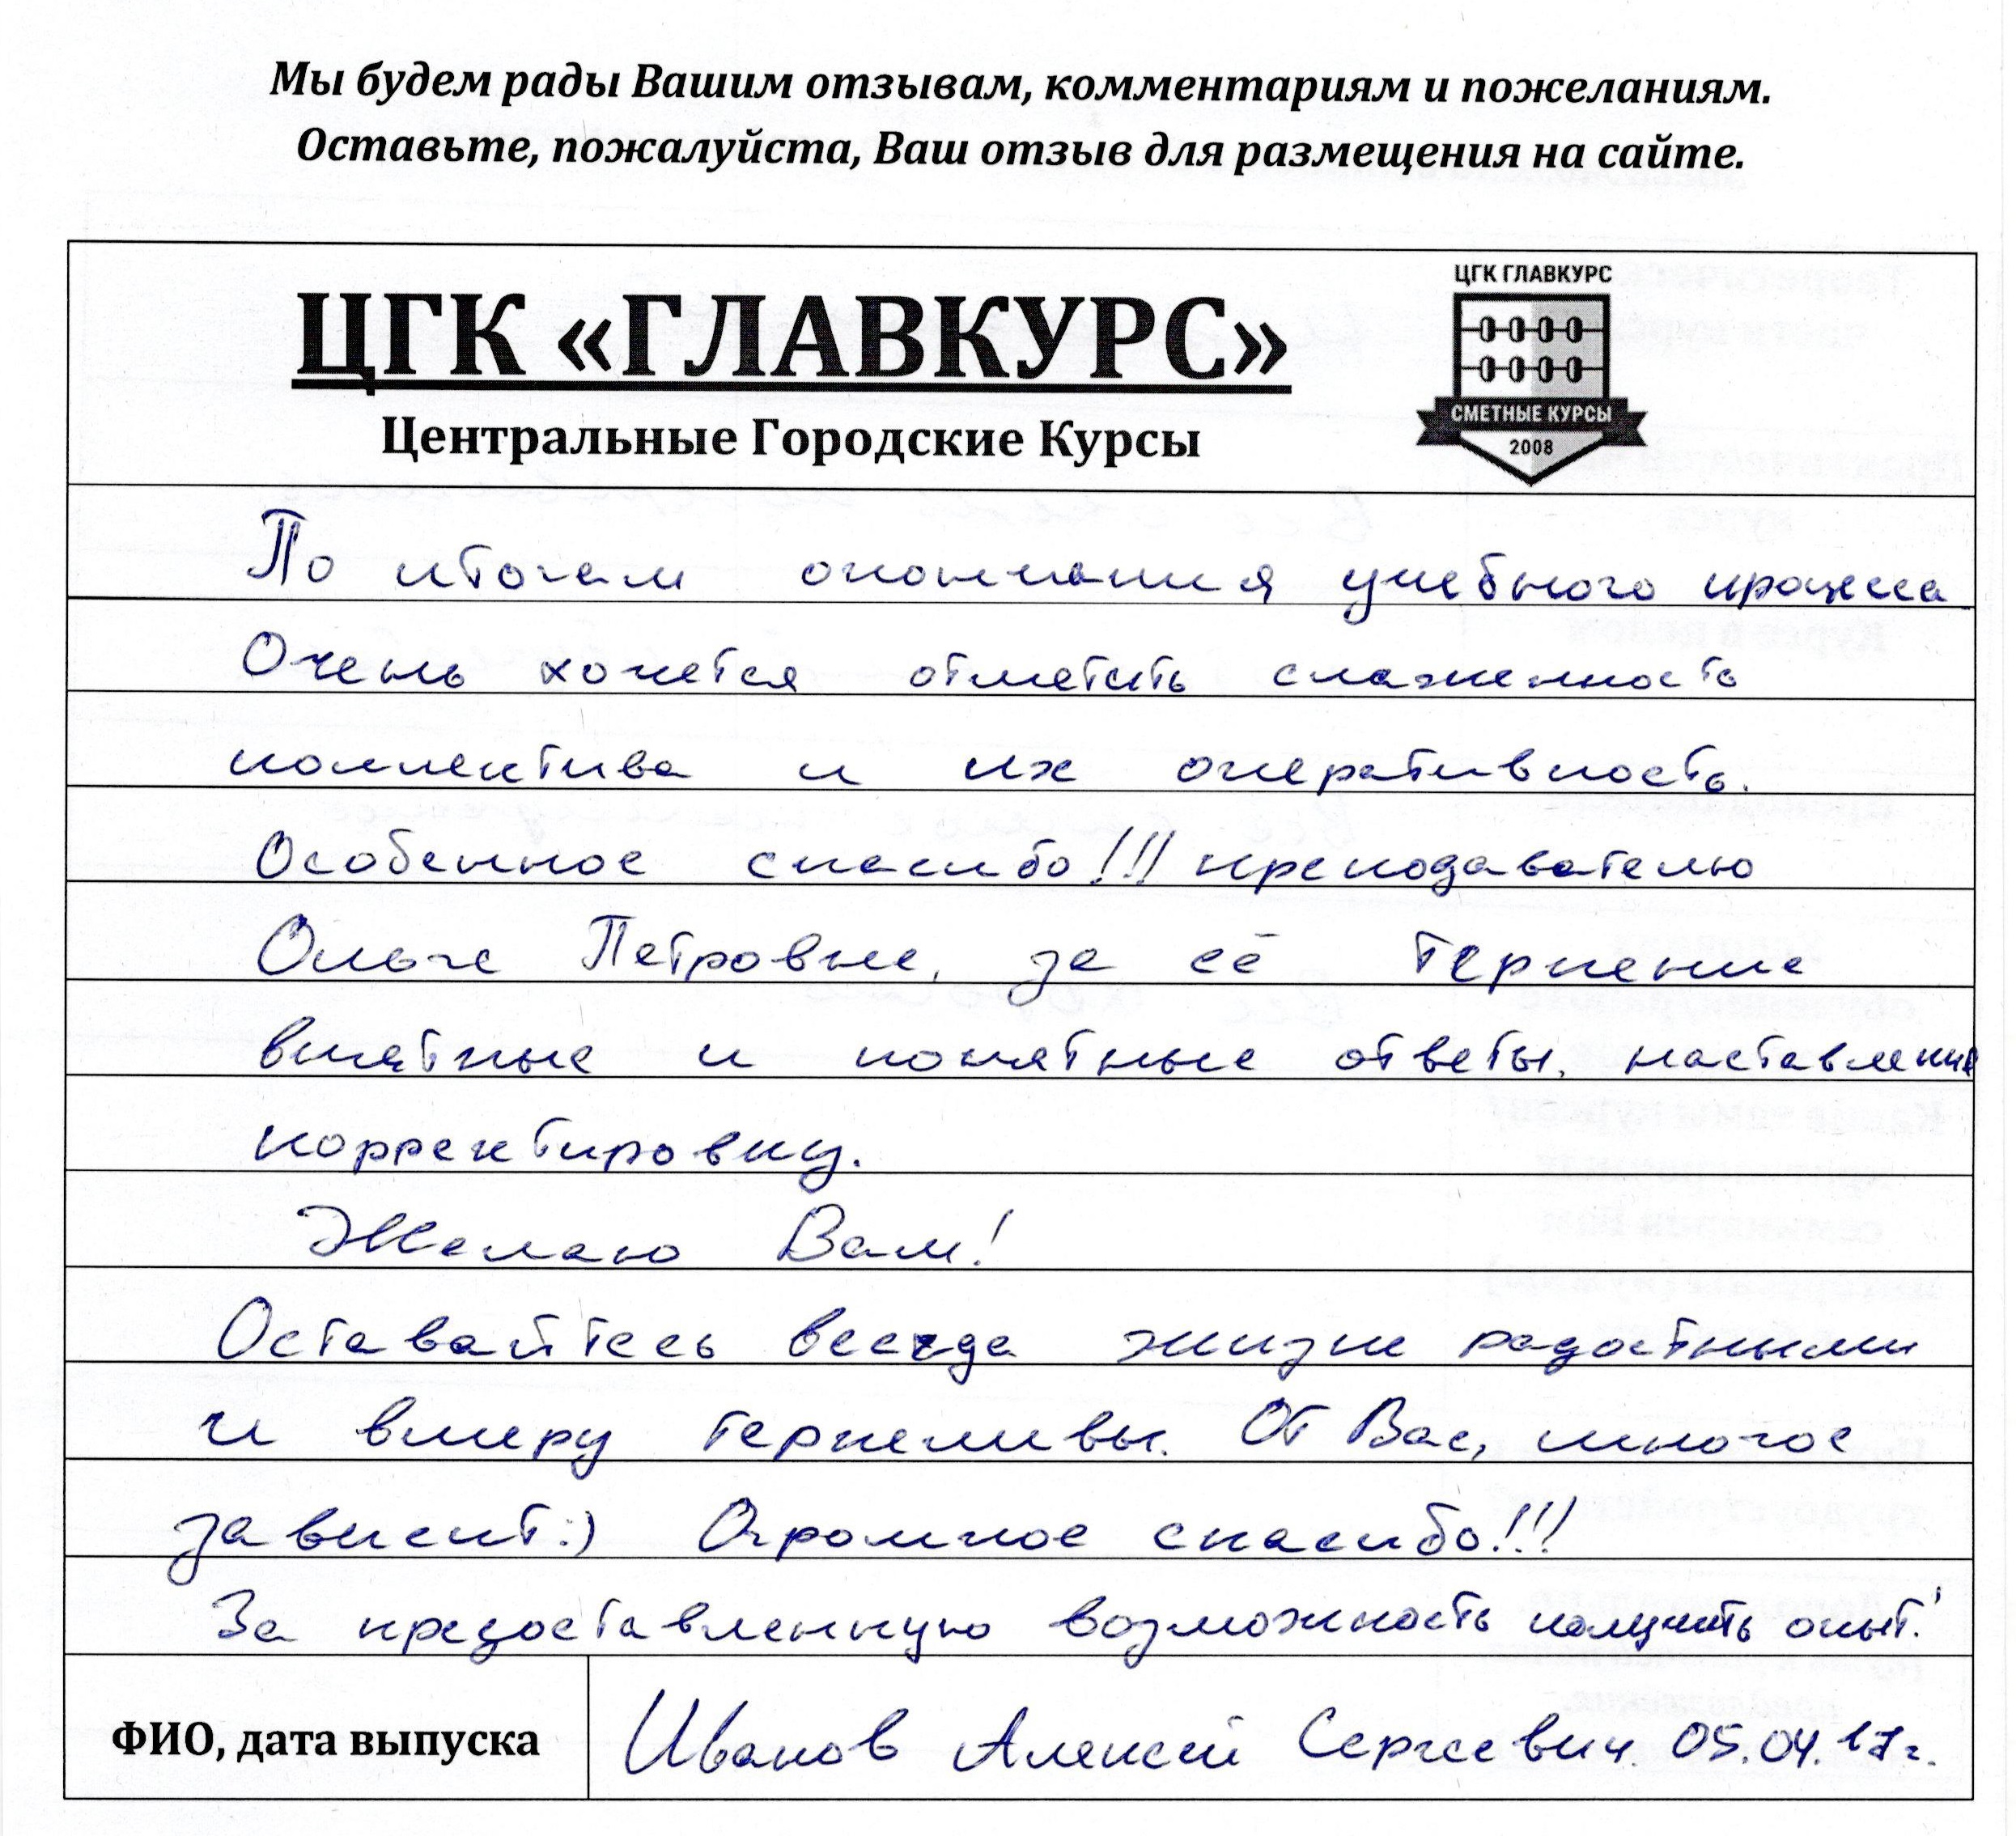 Мы будем рады Вашим отзывам, комментариям и пожеланиям.
Оставьте, пожалуйста, Ваш отзыв для размещения на сайте.
ЦГК «ГЛАВКУРС»
Центральные Городские Курсы
ЦГК ГЛАВКУРС
СМЕТНЫЕ КУРСЫ
2008
По итогам окончания учебного процесса
Очень хочется отметить слаженность
коллектива и их оперативность.
Особенное спасибо!!! преподавателю
Ольге Петровне, за её терпение
внятные и понятные ответы, наставления
корректировку.
Желаю Вам!
Оставайтесь всегда жизне радостными
и вмеру терпеливы. От Вас, многое
зависит:) Огромное спасибо!!!
За предоставленную возможность получить опыт!
ФИО, дата выпуска
Иванов Алексей Сергеевич. 05.04.17г.